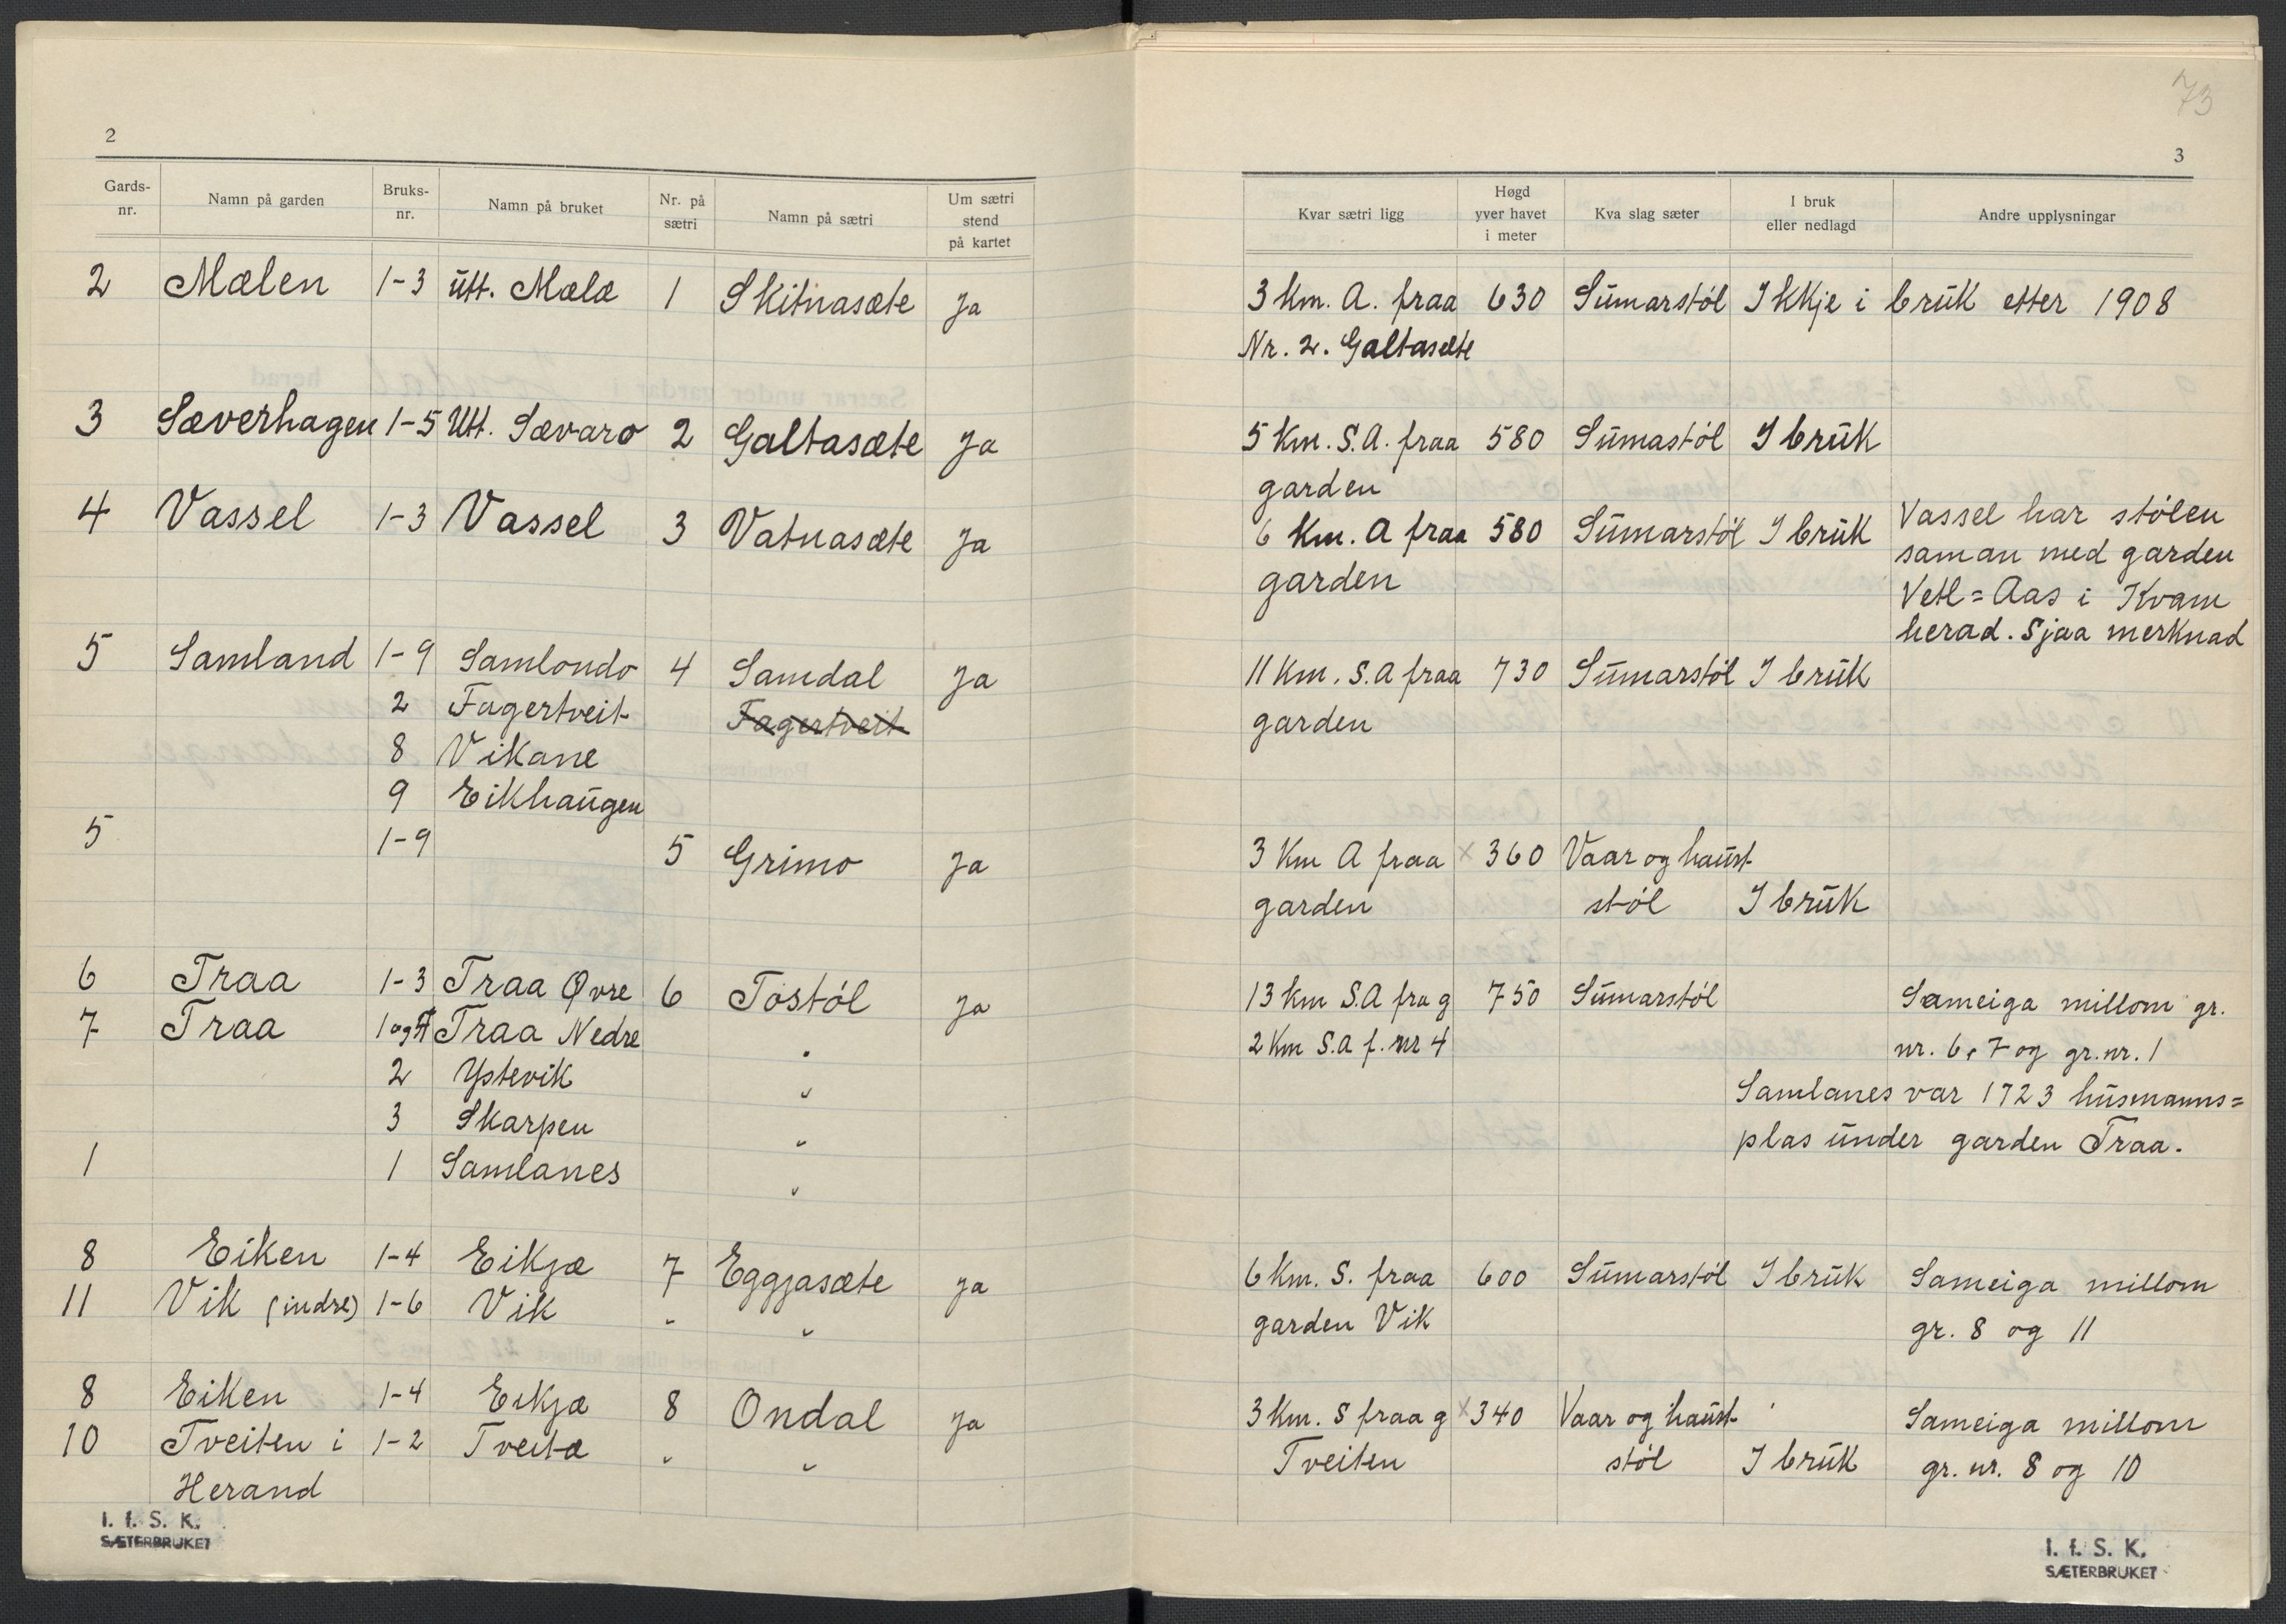 73
2
3
Gards-nr. Namn på garden Bruks-nr. Namn på bruket Nr. på sætri Namn på sætri Um sætri stend på kartet Kvar sætri ligg Høgd yver havet i meter Kva slag sæter I bruk eller nedlagd Andre upplysningar
2 Mælen 1-3 Utt. Mælæ 1 Skitnasæte Ja 3 Km. A. fraa 630 Sumarstøl Ikkje i bruk etter 1908
Nr. 2. Galtasæte
3 Sæverhagen 1-5 Utt. Sævaro 2 Galtasæte Ja 5 Km. S.A. fraa 580 Sumastøl I bruk
garden
4 Vassel 1-3 Vassel 3 Vatnasæte Ja 6 Km. A fraa 580 Sumarstøl I bruk Vassel har stølen
garden saman med garden
Vetl=Aas i Kvam
herad. Sjaa merknad
5 Samland 1-9 Samlondo 4 Samdal Ja 11 Km. S.A fraa 730 Sumarstøl I bruk
2 Fagertveit Fagertveit garden
8 Vikane
9 Eikhaugen
5 1-9 5 Grimo Ja 3 Km A fraa x 360 Vaar og haust
garden støl I bruk
6 Traa 1-3 Traa Øvre 6 Tostøl Ja 13 Km S.A fra g 750 Sumarstøl Sameiga millom gr.
7 Traa 1 og 4 Traa Nedre " 2 Km S.A f. nr 4 nr. 6, 7 og gr. nr. 1
2 Ystevik " Samlanes var 1723 husmanns=
3 Skarpen " plas under garden Traa.
1 1 Samlanes "
8 Eiken 1-4 Eikjæ 7 Eggjasæte Ja 6 Km. S. fraa 600 Sumarstøl I bruk Sameiga millom
11 Vik (indre) 1-6 Vik " " garden Vik gr. 8 og 11
8 Eiken 1-4 Eikjæ 8 Ondal Ja 3 Km. S fraa g x 340 Vaar og haust Sameiga millom
10 Tveiten i 1-2 Tveitæ " " Tveiten støl I bruk gr. nr. 8 og 10
Herand
I. f. S. K.
SÆTERBRUKET
I. f. S. K.
SÆTERBRUKET